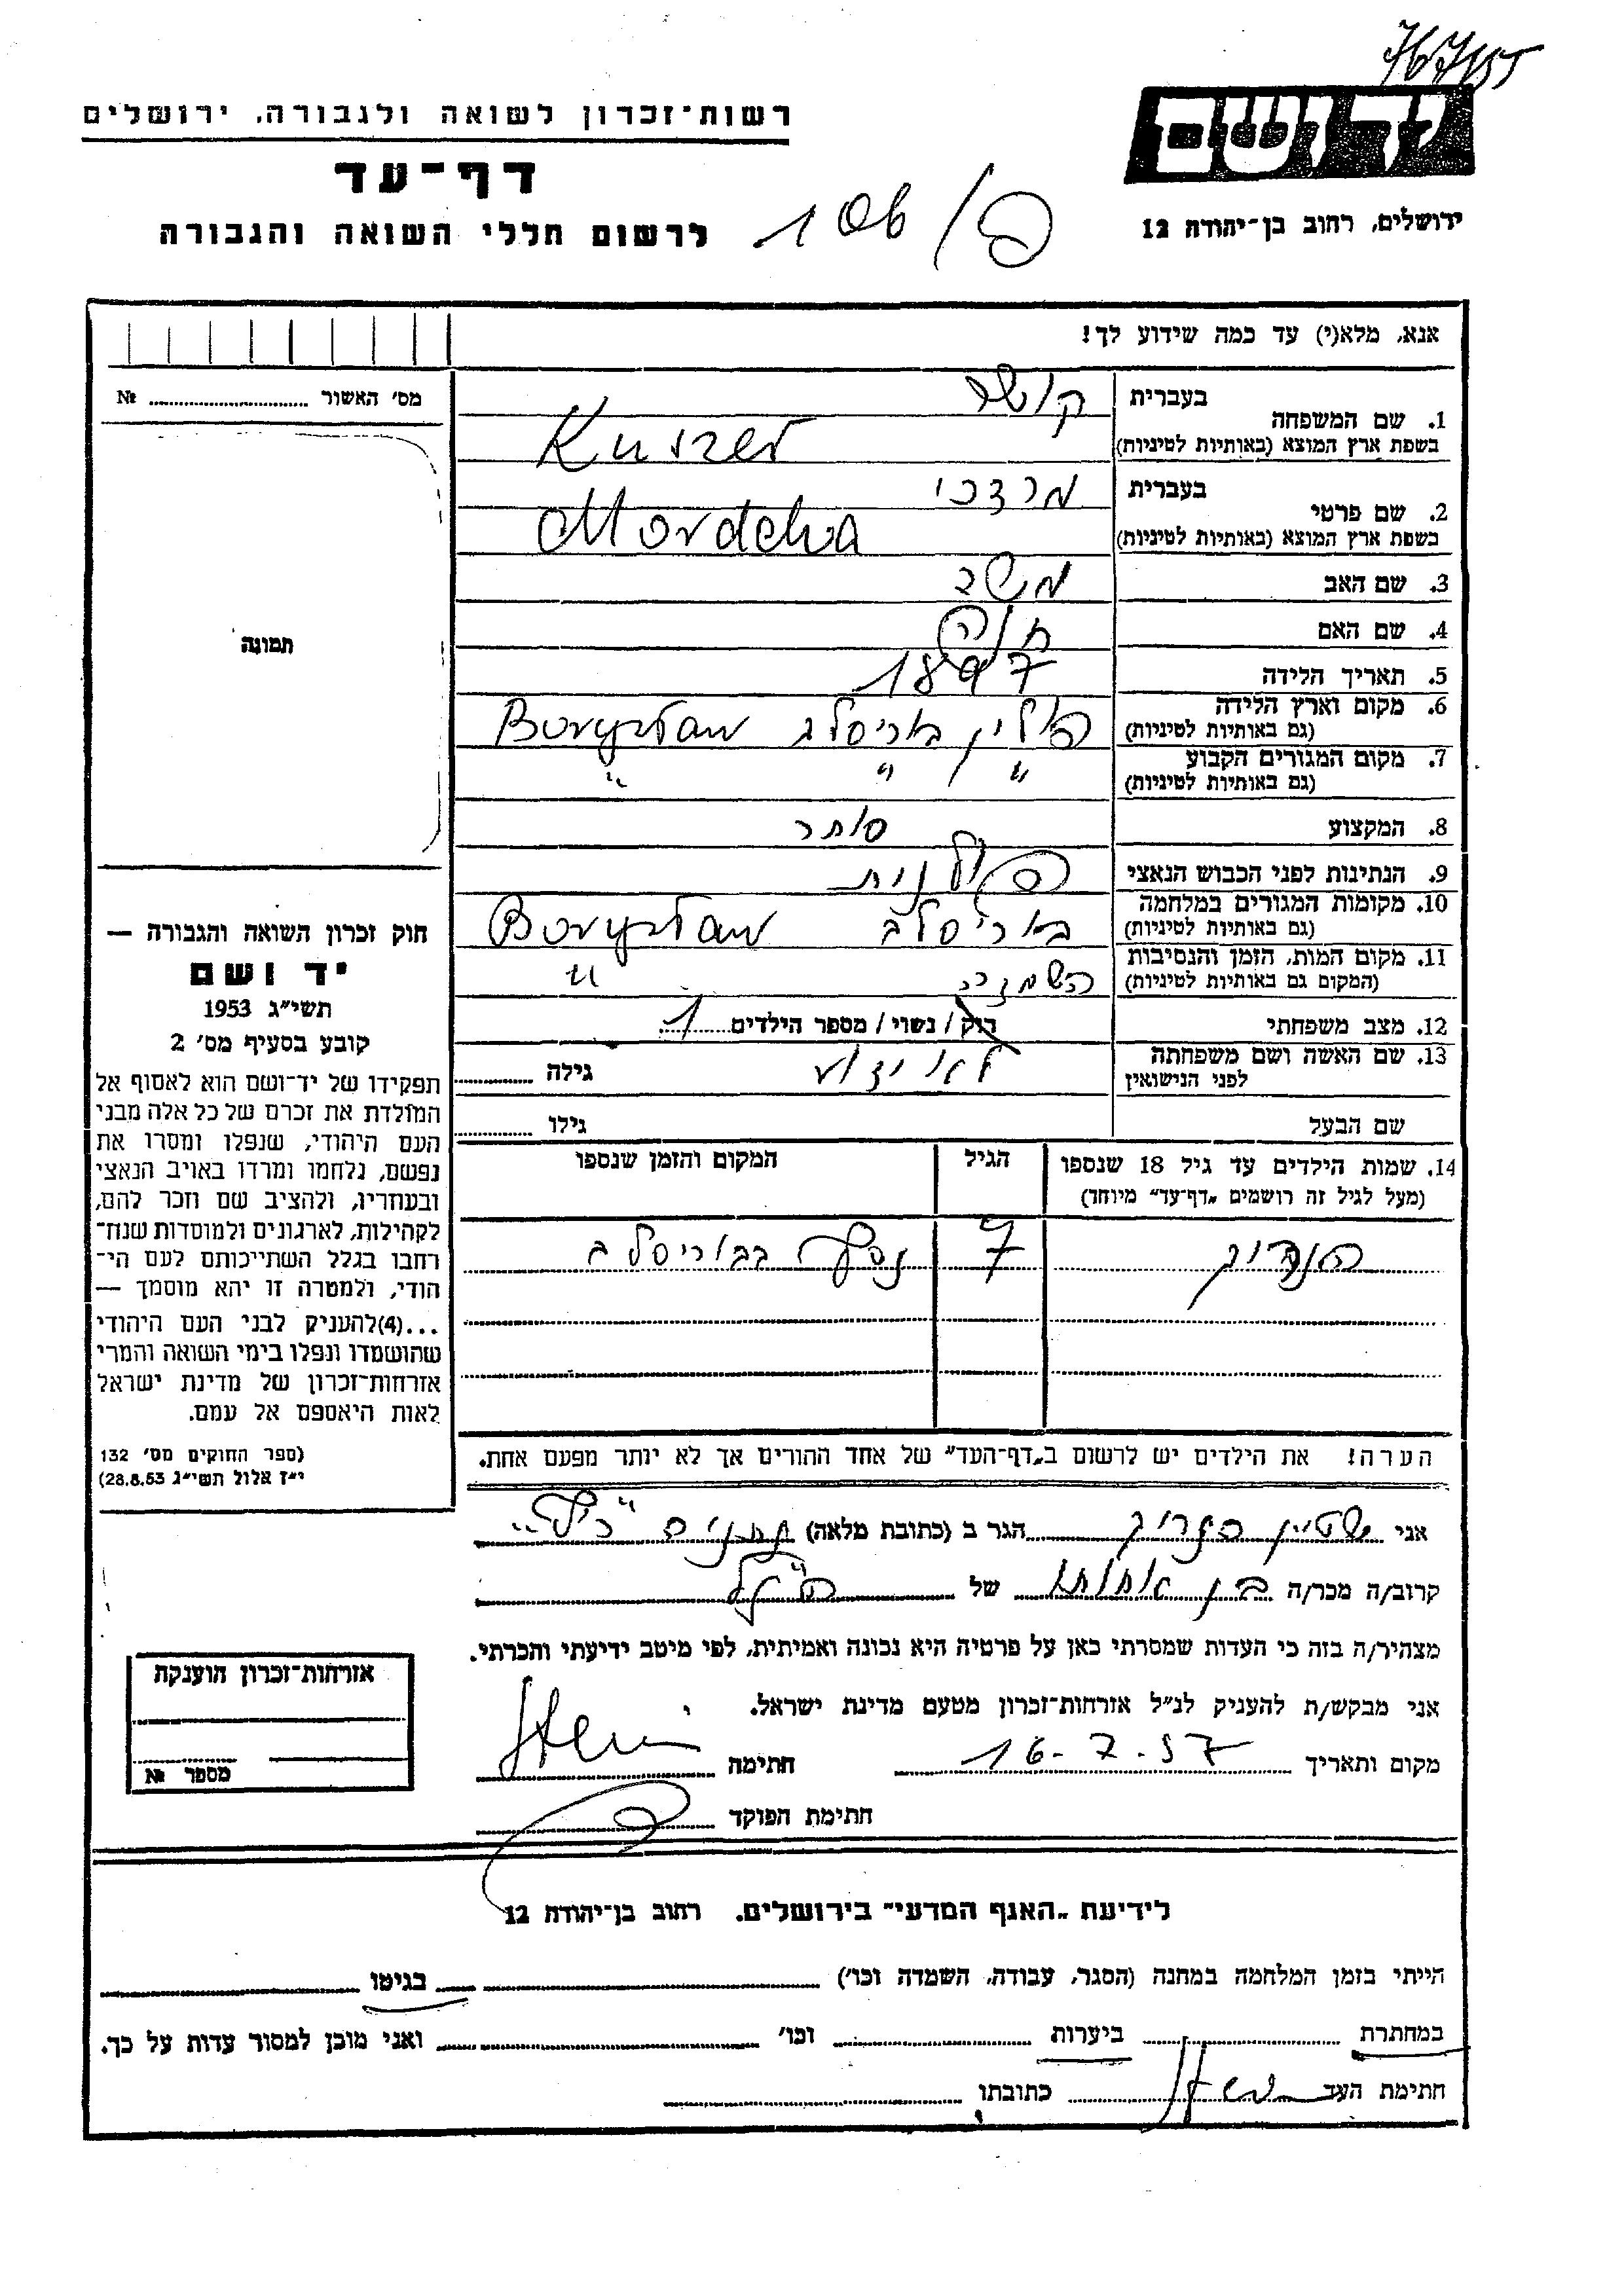 767/155
רשות־זכרון לשואה ולגבורה, ירושלים
ידושם
דף־עד
לרשום חללי השואה והגבורה
ירושלים, רחוב בן־יהודה 12
אנא, מלא(י) עד כמה שידוע לך!
מס' האשור № 
1. שם המשפחה
בעברית קושר
בשפת ארץ המוצא (באותיות לטיניות) Kuszer
2. שם פרטי
בעברית מרדכי
בשפת ארץ המוצא (באותיות לטיניות) Mordcha
3. שם האב משה
4. שם האם חנה
תמונה
5. תאריך הלידה 1897
6. מקום וארץ הלידה פולין בוריסלב Borysław
(גם באותיות לטיניות)
7. מקום המגורים הקבוע " " "
(גם באותיות לטיניות)
8. המקצוע סוחר
9. הנתינות לפני הכבוש הנאצי פולנית
10. מקומות המגורים במלחמה בוריסלב Borysław
(גם באותיות לטיניות)
11. מקום המות, הזמן והנסיבות השמדה "
(המקום גם באותיות לטיניות)
12. מצב משפחתי רוק / נשוי / מספר הילדים 1
13. שם האשה ושם משפחתה לא ידוע גילה
לפני הנישואין
שם הבעל גילו
14. שמות הילדים עד גיל 18 שנספו הגיל המקום והזמן שנספו
(מעל לגיל זה רושמים „דף־עד" מיוחד)
הנריק 7 נספה בבוריסלב
הערה! את הילדים יש לרשום ב„דף־העד" של אחד ההורים אך לא יותר מפעם אחת.
חוק זכרון השואה והגבורה —
יד ושם
תשי"ג 1953
קובע בסעיף מס' 2
תפקידו של יד־ושם הוא לאסוף אל
המולדת את זכרם של כל אלה מבני
העם היהודי, שנפלו ומסרו את
נפשם, נלחמו ומרדו באויב הנאצי
ובעוזריו, ולהציב שם וזכר להם,
לקהילות, לארגונים ולמוסדות שנח־
רחבו בגלל השתייכותם לעם הי־
הודי, ולמטרה זו יהא מוסמך —
...(4)להעניק לבני העם היהודי
שהושמדו ונפלו בימי השואה והמרי
אזרחות־זכרון של מדינת ישראל
לאות היאספם אל עמם.
(ספר החוקים מס' 132
י"ז אלול תשי"ג 28.8.53)
אני שטיין הנריק הגר ב (כתובת מלאה)
קרוב/ה מכר/ה בן אחותו של הנ"ל
מצהיר/ה בזה כי העדות שמסרתי כאן על פרטיה היא נכונה ואמיתית, לפי מיטב ידיעתי והכרתי.
אני מבקש/ת להעניק לנ"ל אזרחות־זכרון מטעם מדינת ישראל.
מקום ותאריך 16-7-57 חתימה Stein
חתימת הפוקד
אזרחות־זכרון הוענקת
מספר №
לידיעת „האגף המדעי" בירושלים. רחוב בן־יהודה 12
הייתי בזמן המלחמה במחנה (הסגר, עבודה, השמדה וכו') בגיטו
במחתרת ביערות וכו' ואני מוכן למסור עדות על כך.
חתימת העד Stein כתובתו